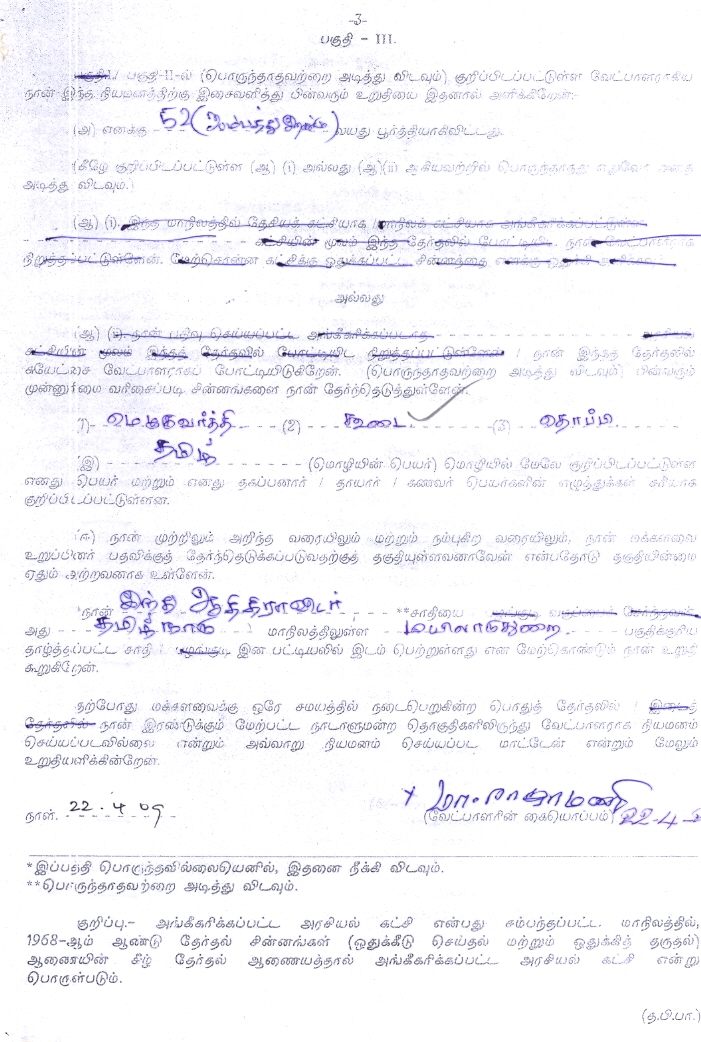 -3-
பகுதி - III.
பகுதி-I/ பகுதி-II-ல் (பொருந்தாதவற்றை அடித்து விடவும்) குறிப்பிடப்பட்டுள்ள வேட்பாளராகிய
நான் இந்த நியமனத்திற்கு இசைவளித்து பின்வரும் உறுதியை இதனால் அளிக்கிறேன்:-
(அ) எனக்கு 52 (ஐம்பத்து இரண்டு) வயது பூர்த்தியாகிவிட்டது.
(கீழே குறிப்பிடப்பட்டுள்ள (ஆ) (i) அல்லது (ஆ)(ii) ஆகியவற்றில் பொருந்தாதது எதுவோ அதை
அடித்து விடவும்.)
(ஆ) (i) இந்த மாநிலத்தில் தேசியக் கட்சியாக / மாநிலக் கட்சியாக அங்கீகரிக்கப்பட்டுள்ள
கட்சியின் மூலம் இந்த தேர்தலில் போட்டியிட நான் வேட்பாளராக
நிறுத்தப்பட்டுள்ளேன். மேற்சொன்ன கட்சிக்கு ஒதுக்கப்பட்ட சின்னத்தை எனக்கு
அல்லது
(ஆ) (ii) நான் பதிவு செய்யப்பட்ட அங்கீகரிக்கப்படாத அரசியல்
கட்சியின் மூலம் இந்தத் தேர்தலில் போட்டியிட நிறுத்தப்பட்டுள்ளேன் / நான் இந்தத் தேர்தலில்
சுயேட்சை வேட்பாளராகப் போட்டியிடுகிறேன். (பொருந்தாதவற்றை அடித்து விடவும்) பின்வரும்
முன்னுரிமை வரிசைப்படி சின்னங்களை நான் தேர்ந்தெடுத்துள்ளேன்.
(1) மெழுகுவர்த்தி (2) கூடை (3) தொப்பி
(இ) தமிழ் (மொழியின் பெயர்) மொழியில் மேலே குறிப்பிடப்பட்டுள்ள
எனது பெயர் மற்றும் எனது தகப்பனார் / தாயார் / கணவர் பெயர்களின் எழுத்துக்கள் சரியாக
குறிப்பிடப்பட்டுள்ளன.
(ஈ) நான் முற்றிலும் அறிந்த வரையிலும் மற்றும் நம்புகிற வரையிலும், நான் மக்களவை
உறுப்பினர் பதவிக்குத் தேர்ந்தெடுக்கப்படுவதற்குத் தகுதியுள்ளவனாவேன் என்பதோடு தகுதியின்மை
ஏதும் அற்றவனாக உள்ளேன்.
*நான் இந்து ஆதிதிராவிடர் **சாதியை
அது தமிழ்நாடு மாநிலத்திலுள்ள மயிலாடுதுறை பகுதிக்குரிய
தாழ்த்தப்பட்ட சாதி / பழங்குடி இன பட்டியலில் இடம் பெற்றுள்ளது என மேற்கொண்டும் நான் உறுதி
கூறுகிறேன்.
தற்போது மக்களவைக்கு ஒரே சமயத்தில் நடைபெறுகின்ற பொதுத் தேர்தலில் / இடைத்
தேர்தலில் நான் இரண்டுக்கும் மேற்பட்ட நாடாளுமன்ற தொகுதிகளிலிருந்து வேட்பாளராக நியமனம்
செய்யப்படவில்லை என்றும் அவ்வாறு நியமனம் செய்யப்பட மாட்டேன் என்றும் மேலும்
உறுதியளிக்கின்றேன்.
நாள். 22.4.09 x மா. ராஜாமணி
(வேட்பாளரின் கையொப்பம்) 22-4-
*இப்பத்தி பொருந்தவில்லையெனில், இதனை நீக்கி விடவும்.
**பொருந்தாதவற்றை அடித்து விடவும்.
குறிப்பு.- அங்கீகரிக்கப்பட்ட அரசியல் கட்சி என்பது சம்பந்தப்பட்ட மாநிலத்தில்,
1968-ஆம் ஆண்டு தேர்தல் சின்னங்கள் (ஒதுக்கீடு செய்தல் மற்றும் ஒதுக்கித் தருதல்)
ஆணையின் கீழ் தேர்தல் ஆணையத்தால் அங்கீகரிக்கப்பட்ட அரசியல் கட்சி என்று
பொருள்படும்.
(த.பி.பா.)